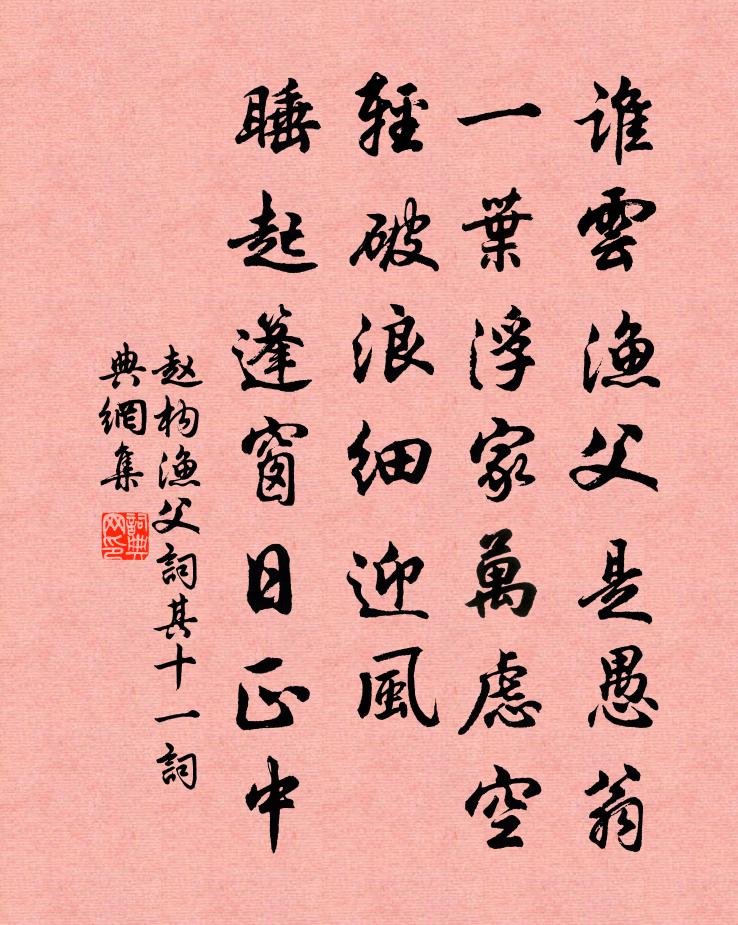 誰雲漁父是愚翁
一葉浮家萬慮空
輕破浪細迎風
睡起蓬窗日正中
赵构漁父詞其十一詞
典網集
詞典网印